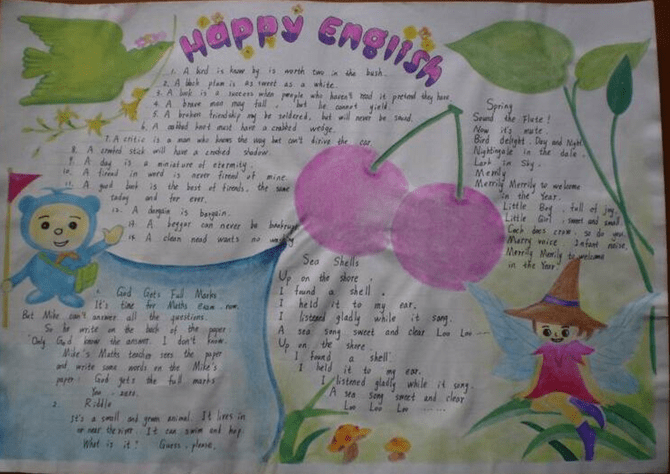 Happy English
1. A bird is know by is worth two in the bush.
2. A black plum is as sweet as a white.
3. A book is a success when people who haven't read it pretend they have.
4. A brave man may fall, but he cannot yield.
5. A broken friendship may be soldered, but will never be sound.
6. A crabbed knot must have a crabbed wedge.
7. A critic is a man who knows the way but can't drive the car.
8. A crooked stick will have a crooked shadow.
9. A day is a miniature of eternity.
10. A friend in word is never friend of mine.
11. A good book is the best of friends, the same
today and for ever.
12. A bargain is bargain.
13. A beggar can never be bankrupt
14. A clean hand wants no
1. God Gets Full Marks
It's time for Maths exam now.
But Mike can't answer all the questions.
So he write on the back of the paper
"Only God know the answer. I don't know.
Mike's Maths teacher sees the paper
and write some words on the Mike's
paper: God gets the full marks
You, zero.
2. Riddle
It's a small and green animal. It lives in
or near the river. It can swim and hop.
What is it? Guess, please.
Sea Shells
Up on the shore,
I found a shell,
I held it to my ear.
I listened gladly while it song.
A sea song sweet and clear Loo Loo
Up on the shore
I found a shell
I held it to my ear.
I listened gladly while it song.
A sea song sweet and clear
Loo Loo Loo .......
Spring
Sound the Flute!
Now it's mute.
Bird delight, Day and Night
Nightingale in the dale,
Lark in Sky,
Merrily
Merrily Merrily to welcome
in the Year.
Little Boy, full of joy.
Little Girl, sweet and small
Cock does crow, so do you.
Merry voice, Infant noise,
Merrily Merrily to welcome
in the Year.